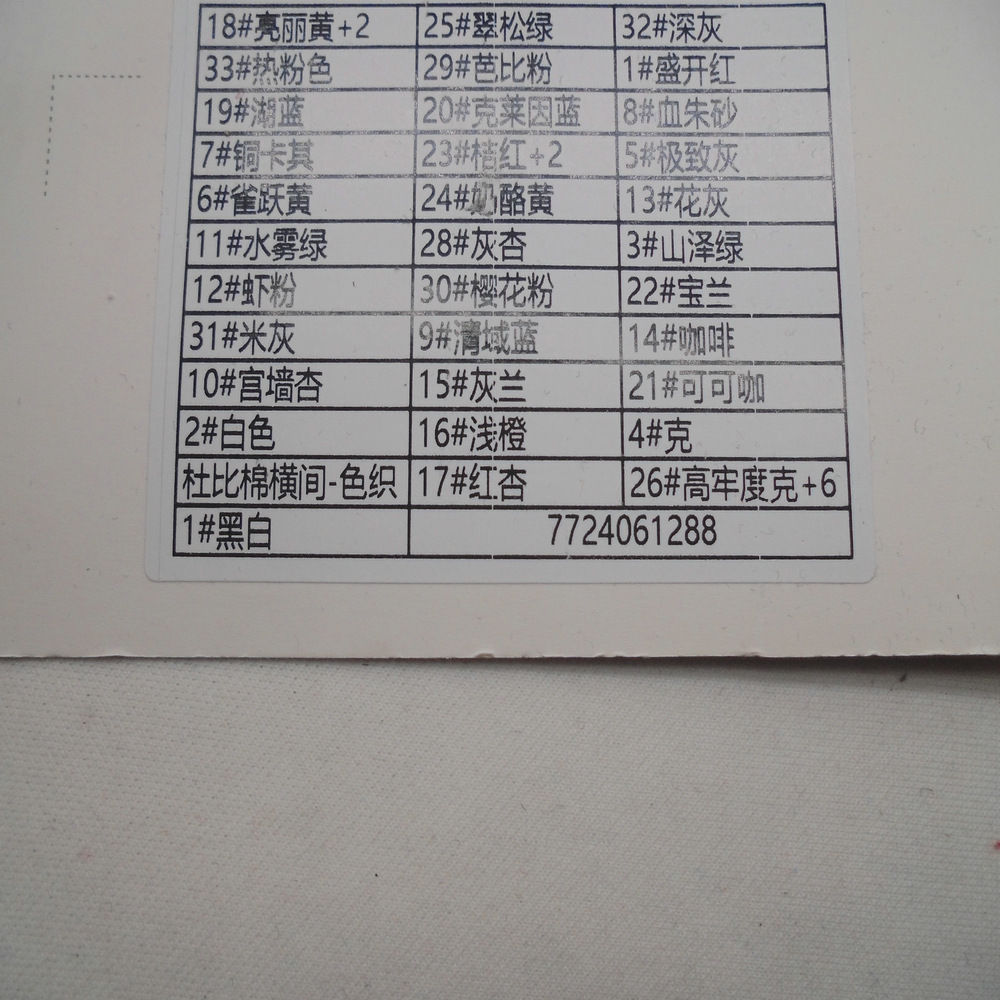 18#亮丽黄+2 25#翠松绿 32#深灰
33#热粉色 29#芭比粉 1#盛开红
19#湖蓝 20#克莱因蓝 8#血朱砂
7#铜卡其 23#桔红+2 5#极致灰
6#雀跃黄 24#奶酪黄 13#花灰
11#水雾绿 28#灰杏 3#山泽绿
12#虾粉 30#樱花粉 22#宝兰
31#米灰 9#清域蓝 14#咖啡
10#宫墙杏 15#灰兰 21#可可咖
2#白色 16#浅橙 4#克
杜比棉横间-色织 17#红杏 26#高牢度克+6
1#黑白 7724061288